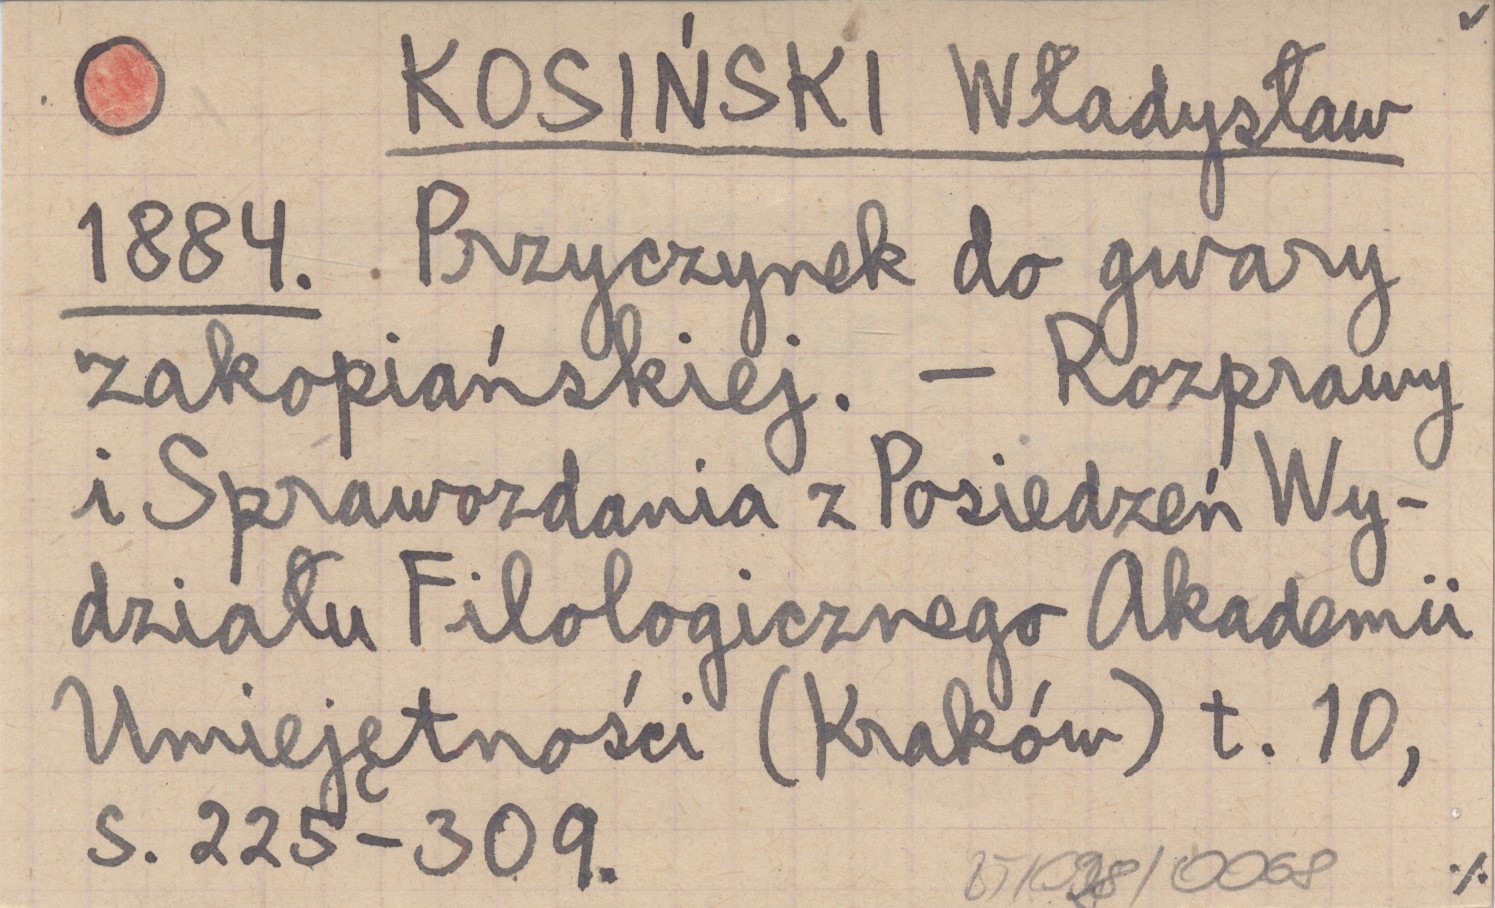 KOSIŃSKI Władysław
1884. Przyczynek do gwary
zakopiańskiej. — Rozprawy
i Sprawozdania z Posiedzeń Wy-
działu Filologicznego Akademii
Umiejętności (Kraków) t. 10,
s. 225-309.